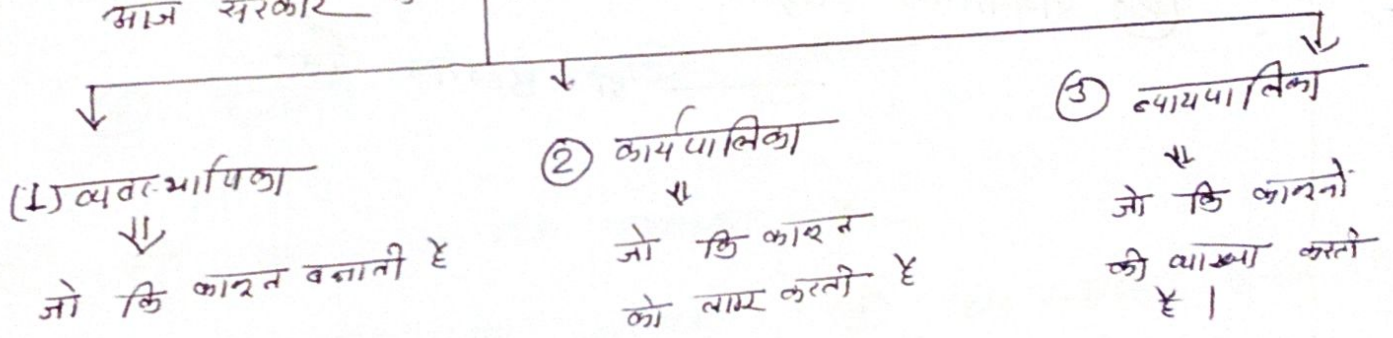 आज सरकार
(1) व्यवस्थापिका
जो कि कानून बनाती है
② कार्यपालिका
जो कि कानून
को लागू करती है
③ न्यायपालिका
जो कि कानूनों
की व्याख्या करती
है।